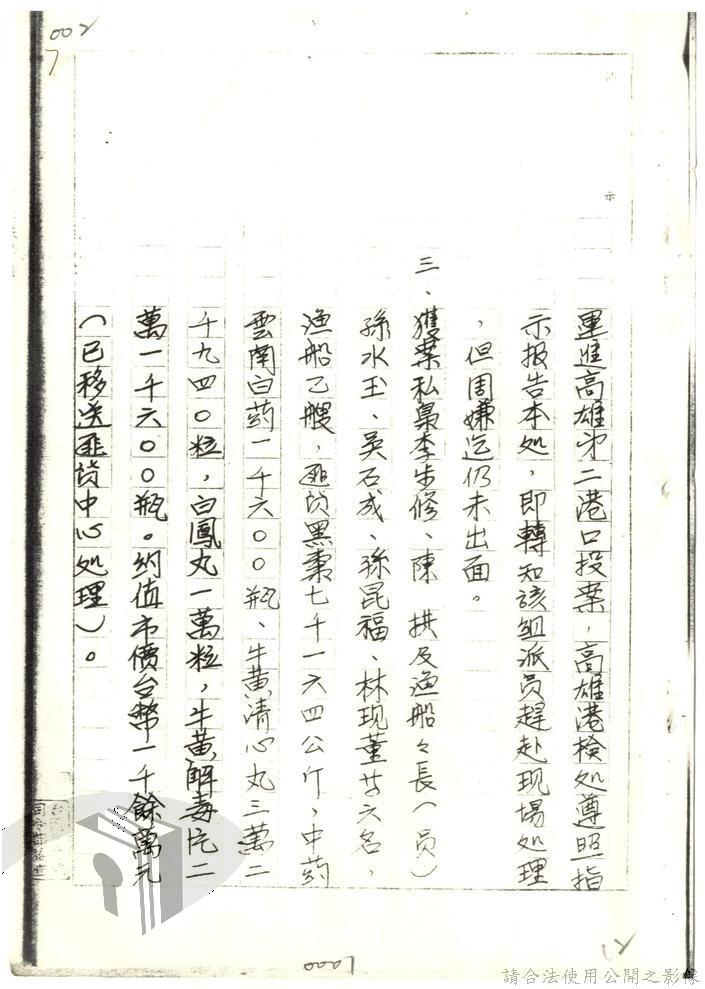 002
7
示
運進高雄第二港口投案，高雄港檢处遵照指
示报告本处，即轉知該組派员趕赴现場处理
，但周嫌迄仍未出面。
三、獲案私梟李步修、陳 拱及漁船々長（员）
孫水玉、吳石成、孫昆福、林现董廿六名，
漁船乙艘，匪貨黑棗七千一六四公斤，中药
雲南白药一千六００瓶、牛黄清心丸三萬二
千九四０粒，白鳳丸一萬粒，牛黄解毒片二
萬一千六００瓶。约值市價台幣一千餘萬元
（已移送匪貨中心处理）。
請合法使用公開之影像